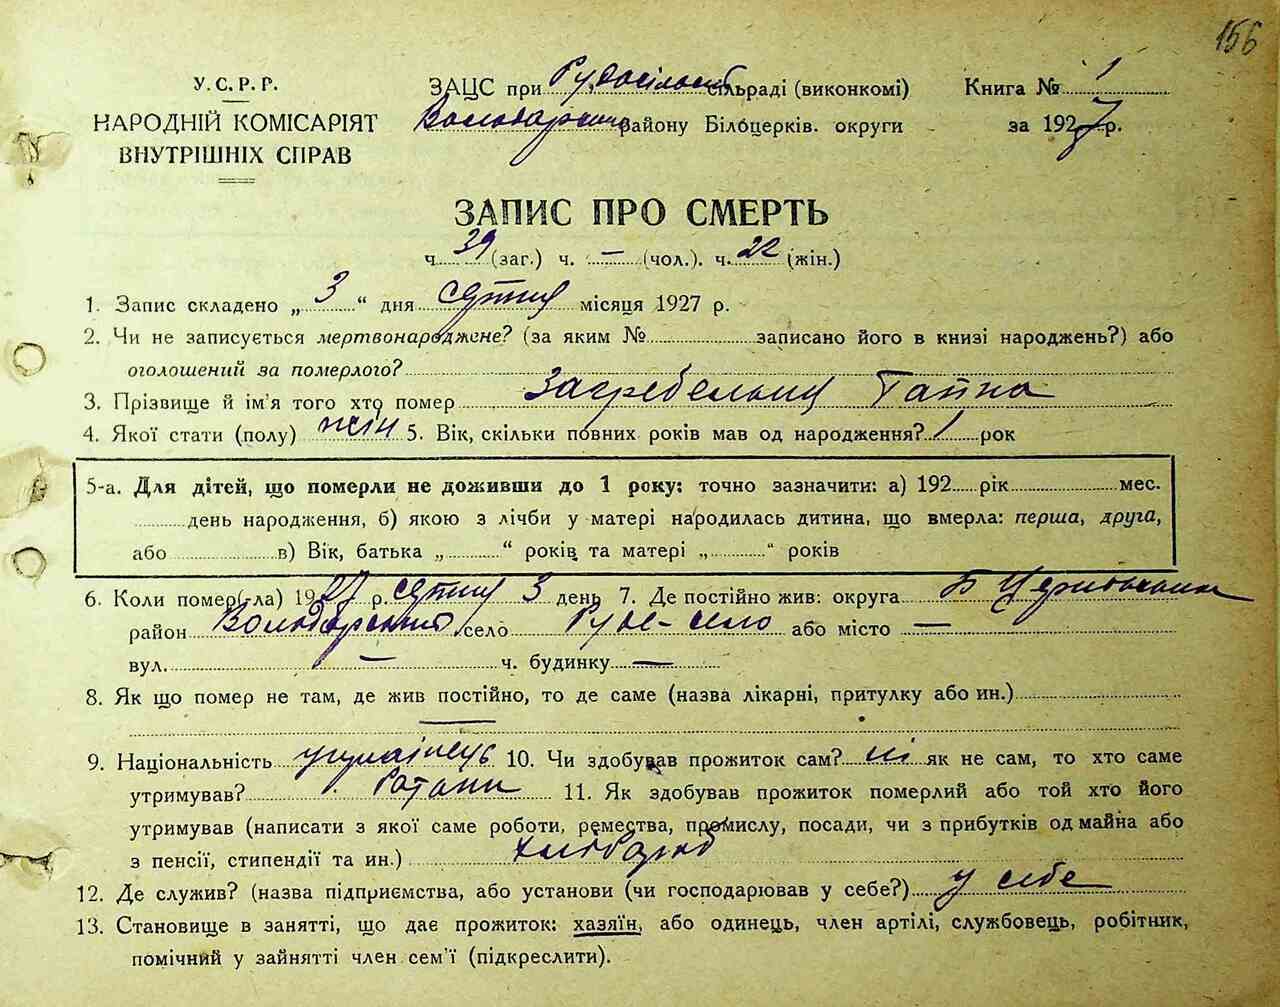 156
У.С.Р.Р.
НАРОДНІЙ КОМІСАРІЯТ
ВНУТРІШНІХ СПРАВ
ЗАЦС при Рудосільській сільраді (виконкомі)
Володарського району Білоцерків. округи
Книга № 1
за 1927 р.
ЗАПИС ПРО СМЕРТЬ
ч. 39 (заг.) ч. — (чол.). ч. 22 (жін.)
1. Запис складено „ 3 “ дня місяця 1927 р.
2. Чи не записується мертвонароджене? (за яким № записано його в книзі народжень?) або
оголошений за померлого?
3. Прізвище й ім'я того хто помер Загребельна Ганна
4. Якої стати (полу) жін 5. Вік, скільки повних років мав од народження? 1 рок
5-а. Для дітей, що померли не доживши до 1 року: точно зазначити: а) 192 рік мес.
день народження, б) якою з лічби у матері народилась дитина, що вмерла: перша, друга,
або в) Вік, батька „ “ років та матері „ “ років
6. Коли помер(ла) 1927 р. 3 день 7. Де постійно жив: округа Б Церківська
район Володарський село Руде-село або місто —
вул. — ч. будинку —
8. Як що помер не там, де жив постійно, то де саме (назва лікарні, притулку або ин.)
—
9. Національність українець 10. Чи здобував прожиток сам? ні як не сам, то хто саме
утримував? 11. Як здобував прожиток померлий або той хто його
утримував (написати з якої саме роботи, ремества, промислу, посади, чи з прибутків од майна або
з пенсії, стипендії та ин.) хлібороб
12. Де служив? (назва підприємства, або установи (чи господарював у себе?) у себе
13. Становище в занятті, що дає прожиток: хазяїн, або одинець, член артілі, службовець, робітник,
помічний у зайнятті член сем'ї (підкреслити).